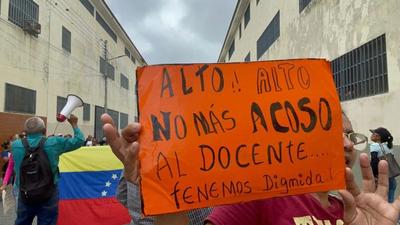 ALTO!! ALTO
NO MÁS ACOSO
AL DOCENTE....
TENEMOS Dignidad!